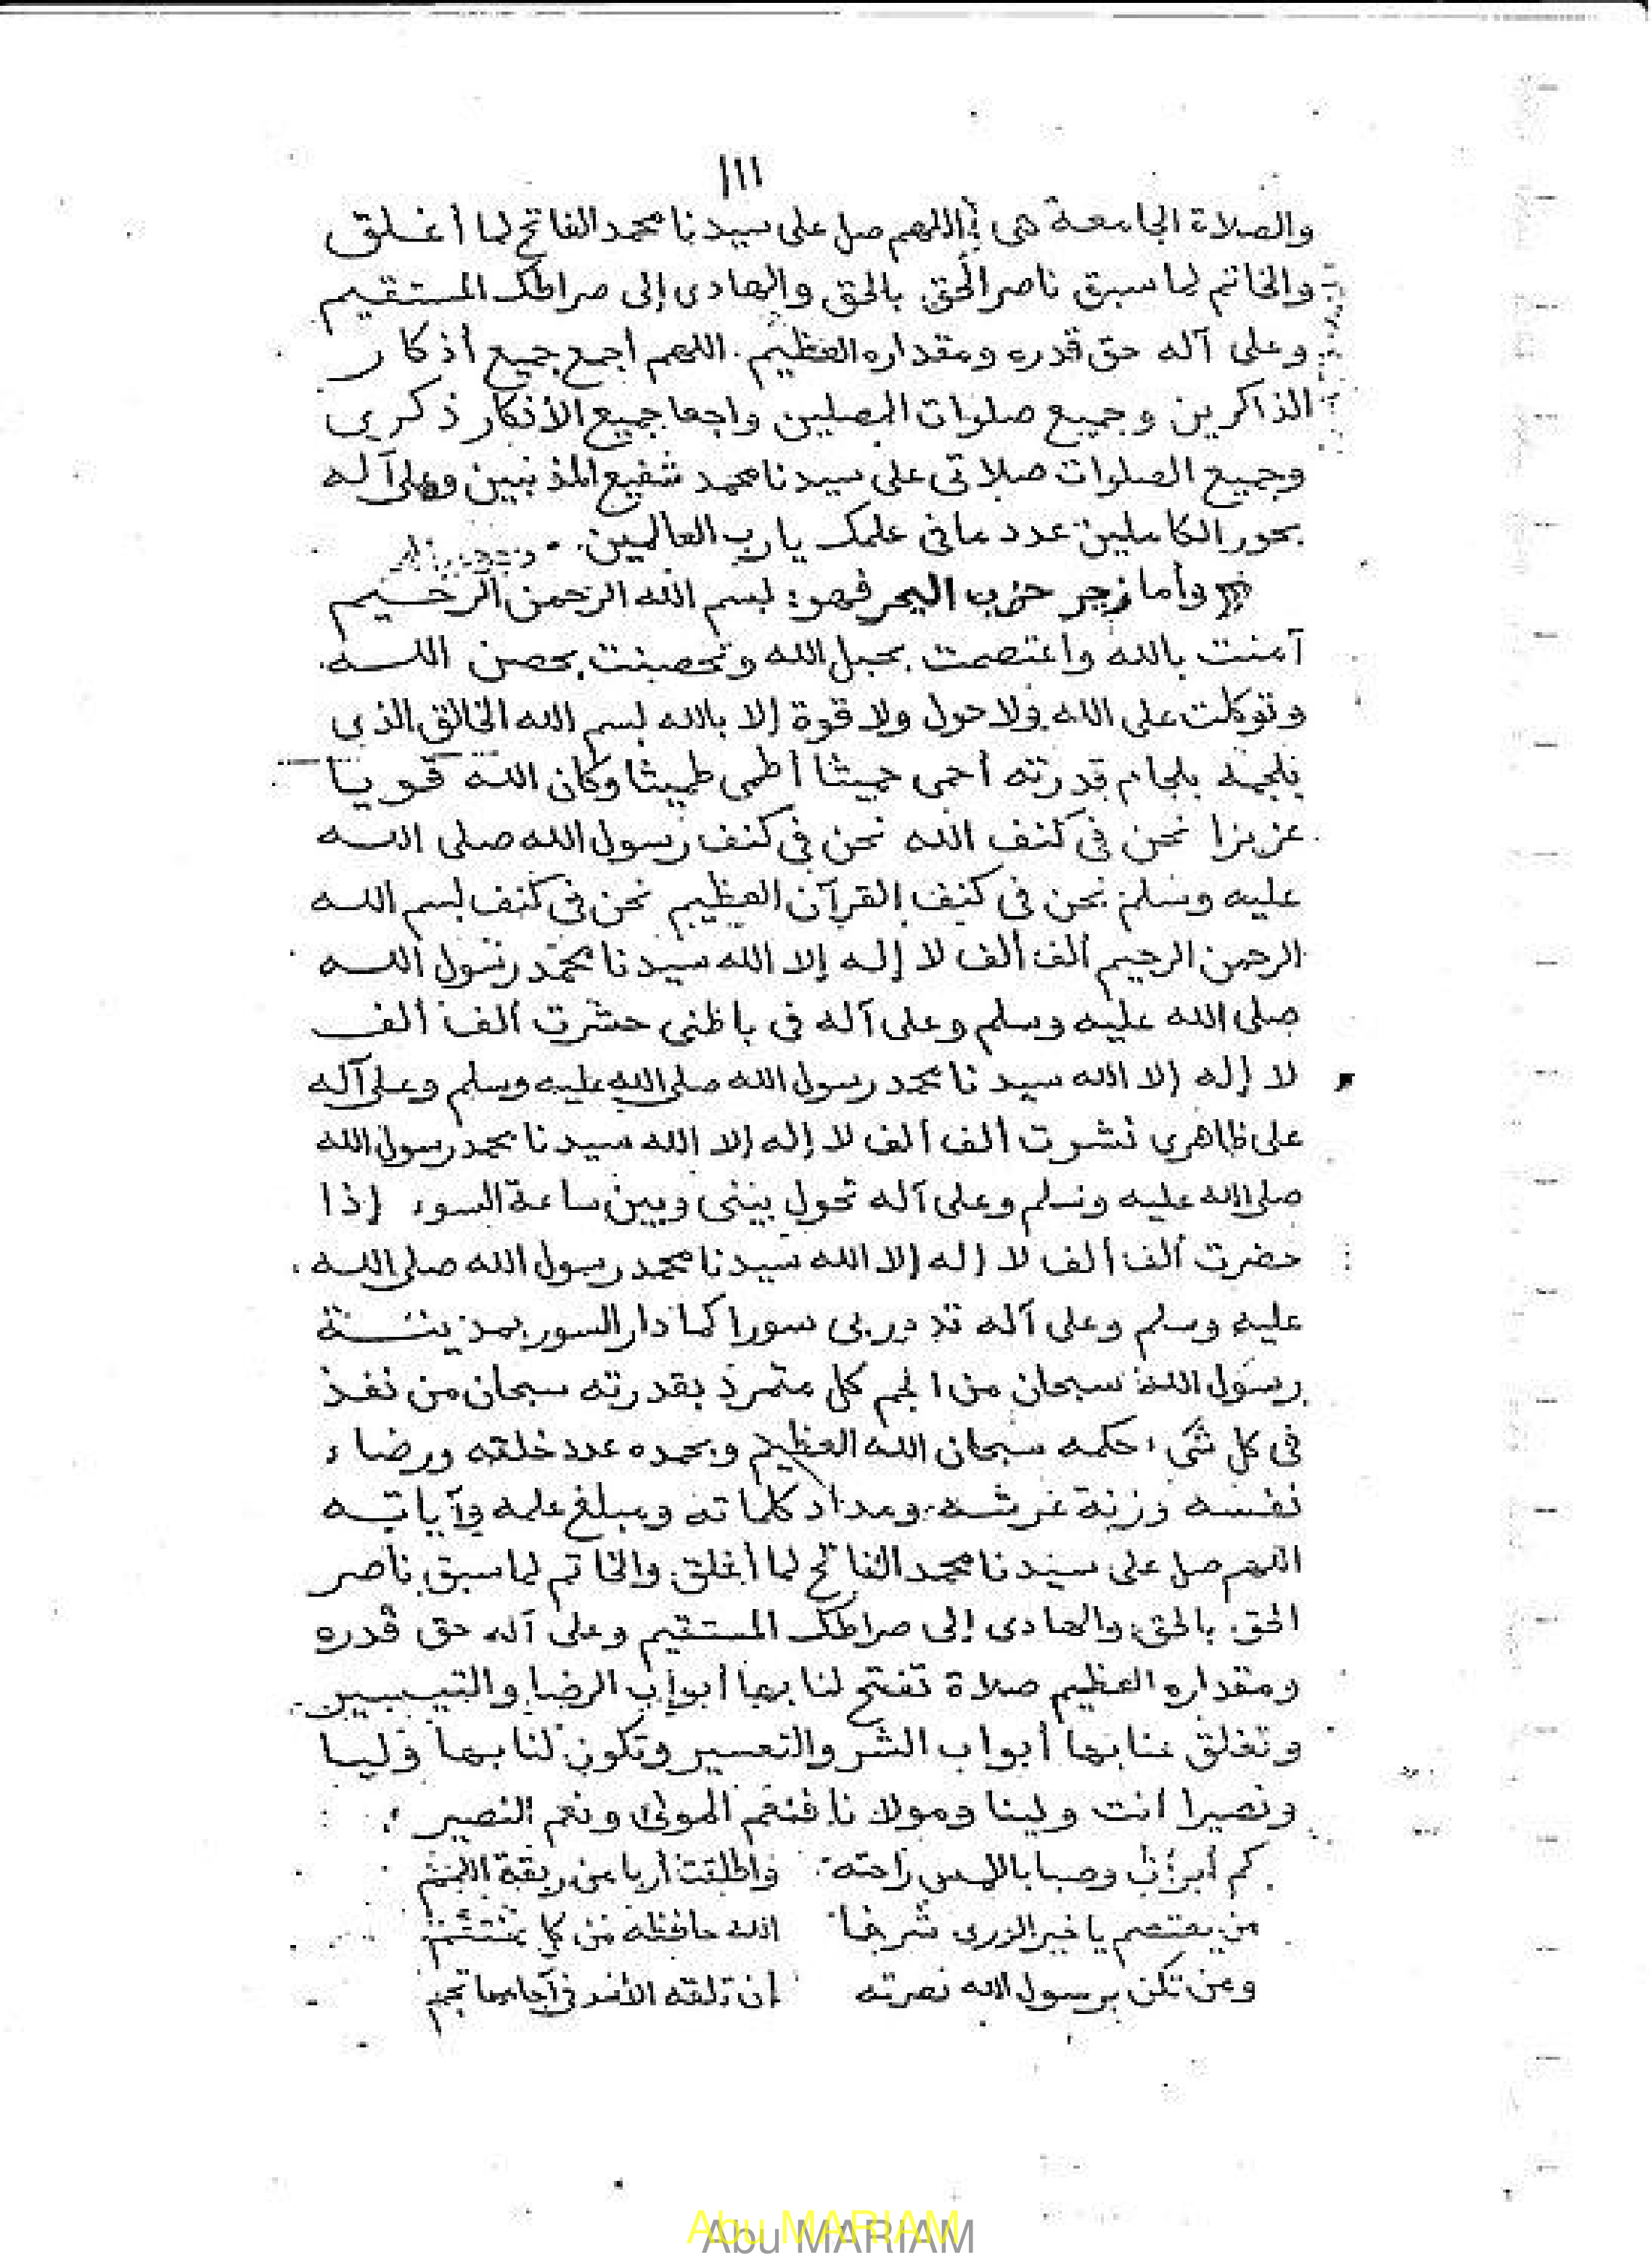 ١١١
والصلاة الجامعة هى اللهم صل على سيدنا محمد الفاتح لما أغلق
والخاتم لما سبق ناصر الحق بالحق والهادى إلى صراطك المستقيم
وعلى آله حق قدره ومقداره العظيم. اللهم اجمع جميع أذكار
الذاكرين وجميع صلوات المصلين واجعل جميع الأذكار ذكرى
وجميع الصلوات صلاتى على سيدنا محمد شفيع المذنبين وعلى آله
بحور الكاملين عدد ما فى علمك يا رب العالمين.
وأما زجر حزب البحر فهو: بسم الله الرحمن الرحيم
آمنت بالله واعتصمت بحبل الله وتحصنت بحصن الله
وتوكلت على الله ولا حول ولا قوة إلا بالله بسم الله الخالق الذى
يلجمه بلجام قدرته أحمى حميثا أطمى طميثا وكان الله قويا
عزيزا نحن فى كنف الله نحن فى كنف رسول الله صلى الله
عليه وسلم نحن فى كنف القرآن العظيم نحن فى كنف بسم الله
الرحمن الرحيم ألف ألف لا إله إلا الله سيدنا محمد رسول الله
صلى الله عليه وسلم وعلى آله فى باطنى حشرت ألف ألف
لا إله إلا الله سيدنا محمد رسول الله صلى الله عليه وسلم وعلى آله
على ظاهرى نشرت ألف ألف لا إله إلا الله سيدنا محمد رسول الله
صلى الله عليه وسلم وعلى آله تحول بينى وبين ساعة السوء إذا
حضرت ألف ألف لا إله إلا الله سيدنا محمد رسول الله صلى الله
عليه وسلم وعلى آله تدور بى سورا كما دار السور بمدينة
رسول الله سبحان من الجم كل متمرد بقدرته سبحان من نفذ
فى كل شىء حكمه سبحان الله العظيم وبحمده عدد خلقه ورضاء
نفسه وزنة عرشه ومداد كلماته ومبلغ علمه وآياته
اللهم صل على سيدنا محمد الفاتح لما أغلق والخاتم لما سبق ناصر
الحق بالحق والهادى إلى صراطك المستقيم وعلى آله حق قدره
ومقداره العظيم صلاة تفتح لنا بها أبواب الرضا والتيسير
وتغلق عنا بها أبواب الشر والتعسير وتكون لنا بها وليا
ونصيرا أنت ولينا ومولانا فنعم المولى ونعم النصير
كم أبرأت وصبا باللمس راحته وأطلقت أربا من ربقة اللمم
من يعتصم يا خير الورى شرفا الله حافظه من كل منتقم
ومن تكن برسول الله نصرته إن تلقه الأسد فى آجامها تجم
Abu MARIAM